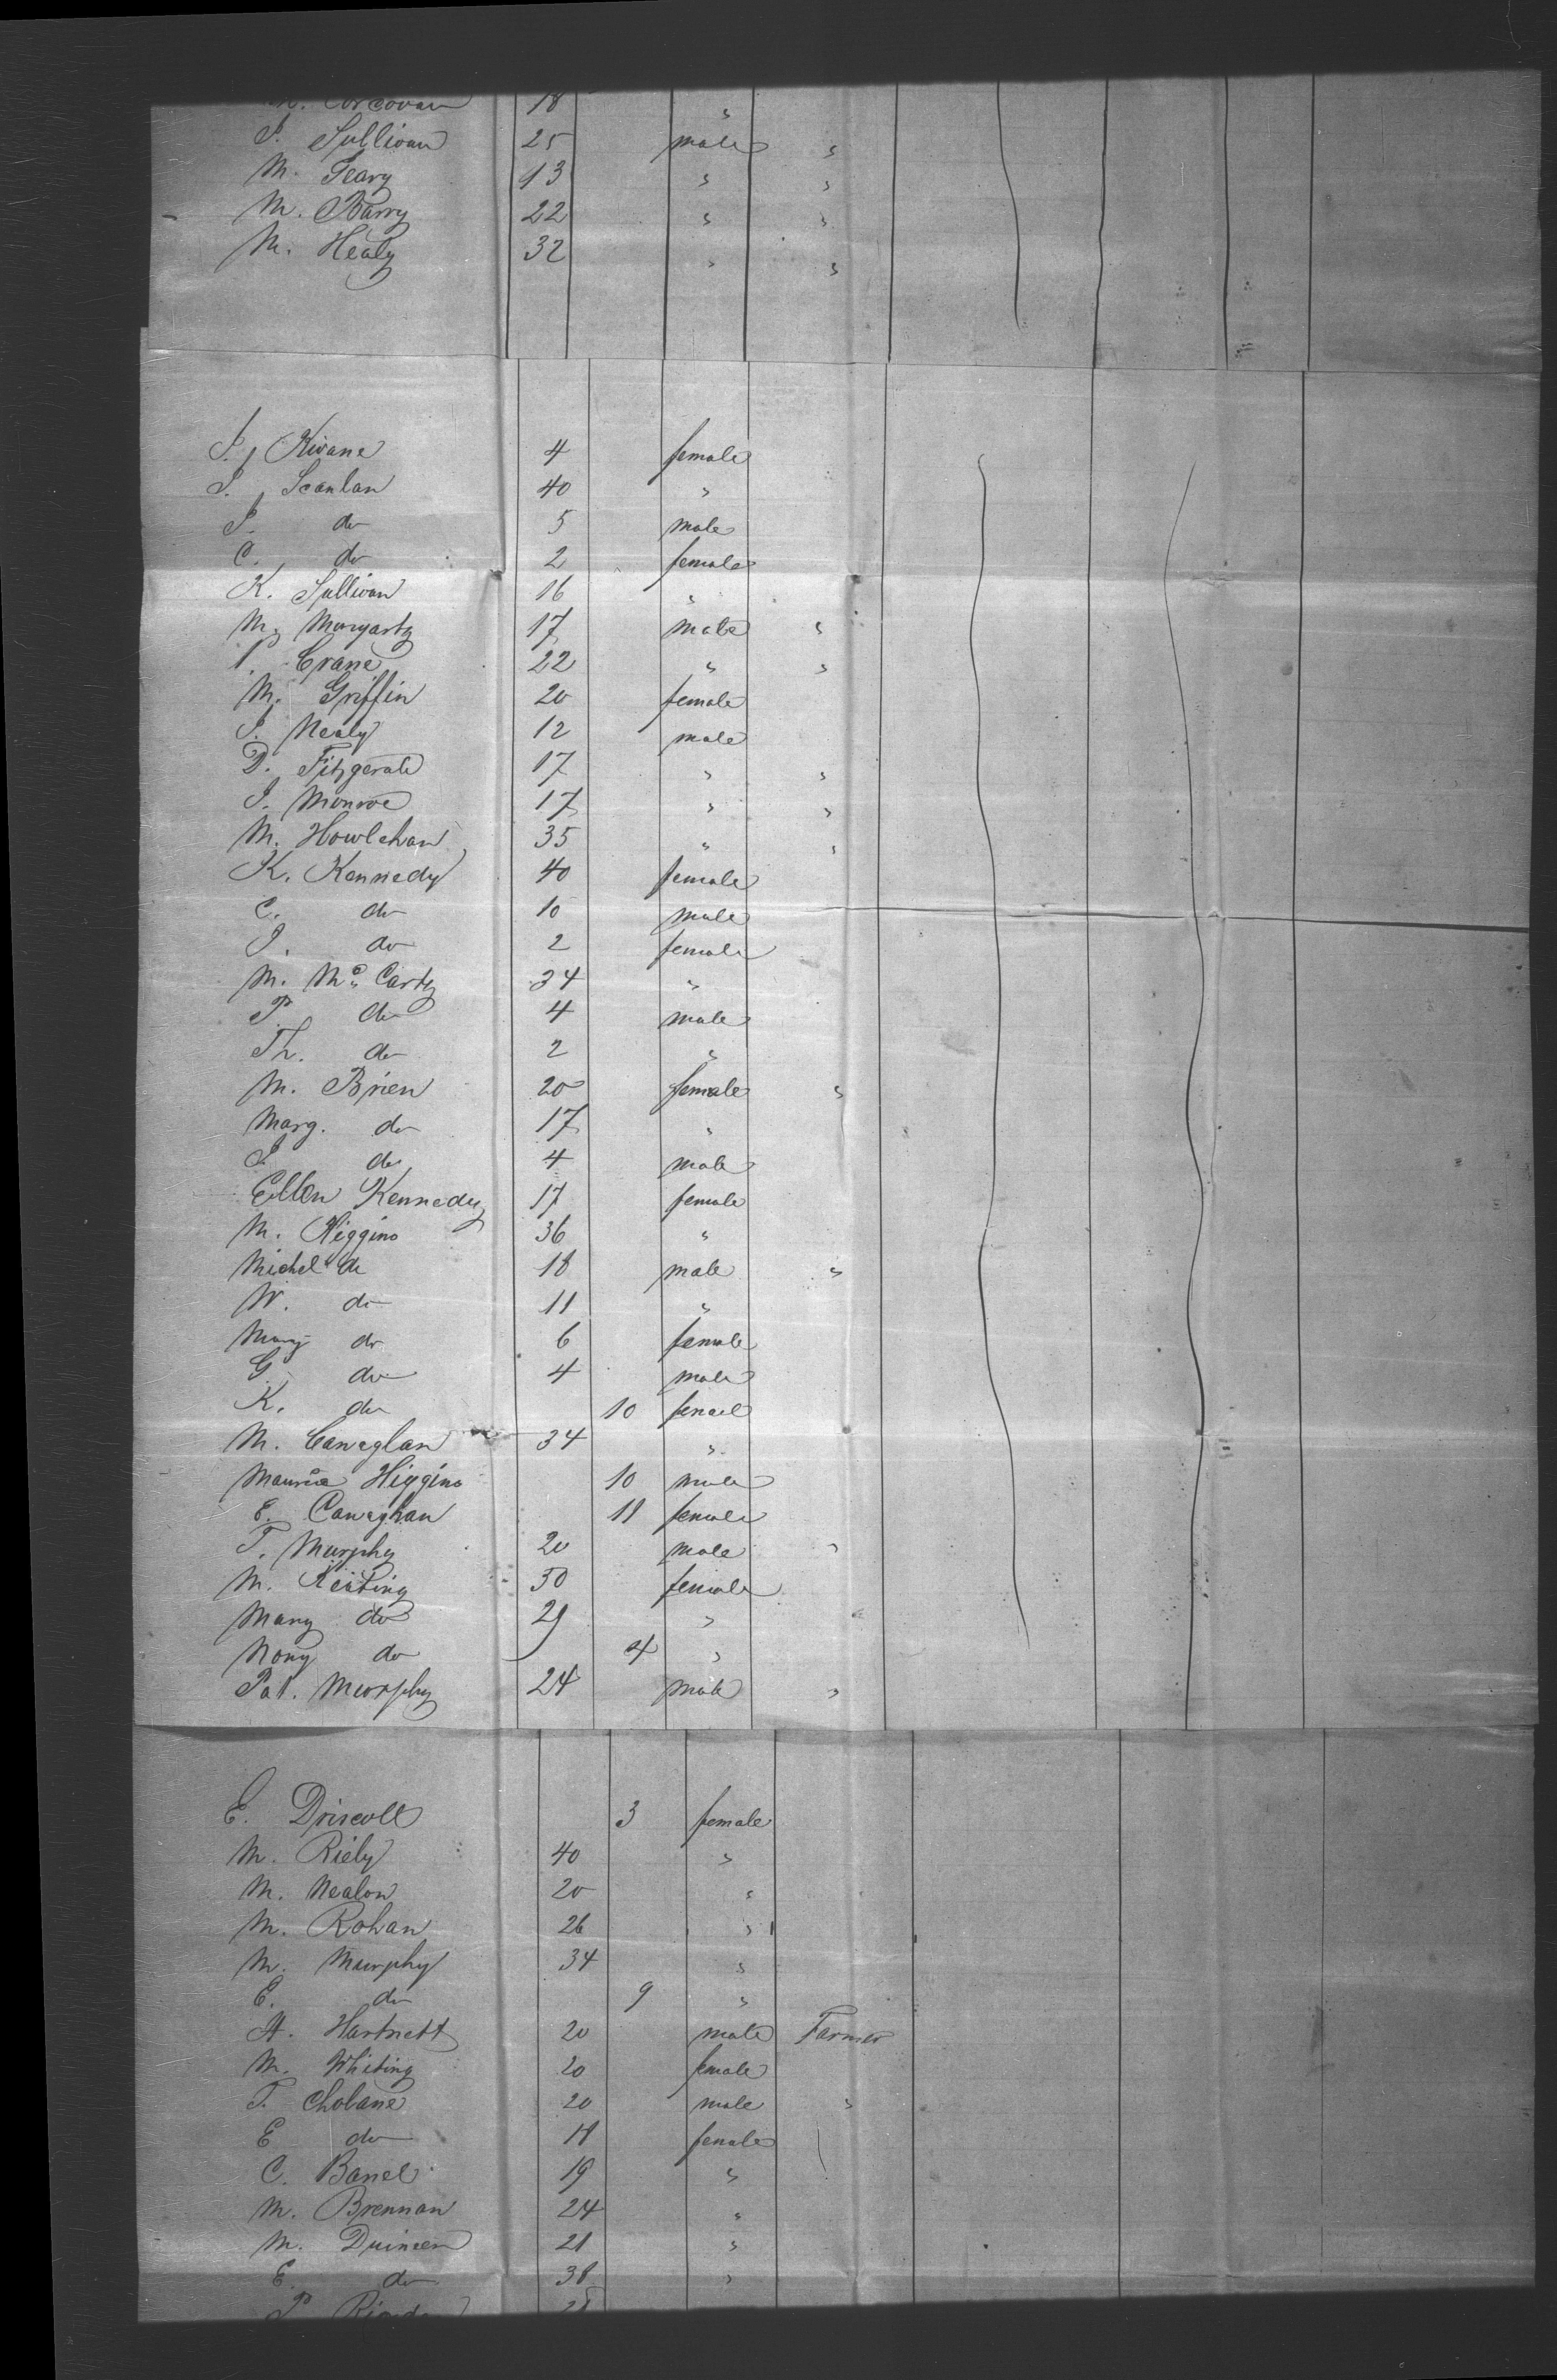 Corcoran 18 "
J. Sullivan 25 male "
M. Geary 13 " "
M. Barry 22 " "
M. Healy 32 " "
J. Kirane 4 female
J. Scanlan 40 "
J. do 5 male
C. do 2 female
K. Sullivan 16 "
M. Moryarty 17 male "
P. Crane 22 " "
M. Griffin 20 female
J. Nealy 12 male
D. Fitzgerald 17 " "
J. Monroe 17 " "
M. Howlehan 35 " "
K. Kennedy 40 female
C. do 10 male
J. do 2 female
M. Mc Carty 34 "
P. do 4 male
Th. do 2 "
M. Brien 20 female "
Marg. do 17 "
J. do 4 male
Ellen Kennedy 17 female
M. Higgins 36 "
Michel do 18 male "
W. do 11 "
Mary do 6 female
G. do 4 male
K. do 10 femael
M. Canaglan 34 "
Maurice Higgins 10 male
E. Canaghan 11 female
T. Murphy 20 male "
M. Keating 50 female
Mary do 29 "
Nony do 4 "
Pat. Murphy 24 male "
E. Driscoll 3 female
M. Riely 40 "
M. Nealon 20 "
M. Rohan 26 "
M. Murphy 34 "
E. do 9 "
A. Hartnett 20 male Farmer
M. Whiting 20 female
T. Cholane 20 male "
E do 18 female
C. Banel 19 "
M. Brennan 24 "
M. Duineen 21 "
E. do 38 "
P.